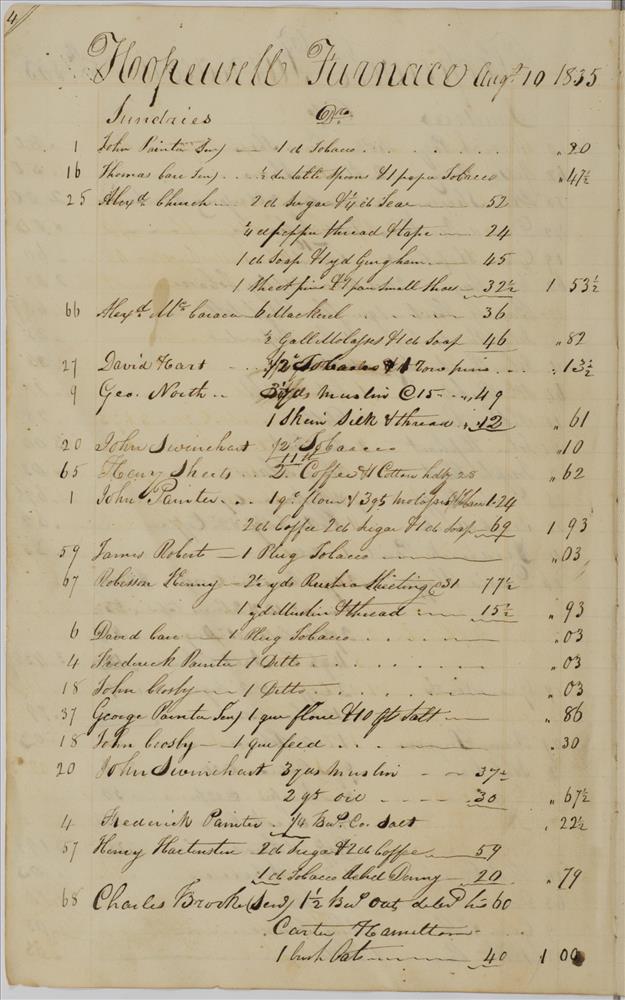 4
Hopewell Furnace Augt 10 1835
Sundries Drs.
1 John Painter Senr — 1 lb Tobacco . . . . . . . „ 20
16 Thomas Care Senr . . ½ dz table Spoons &1 paper Tobacco „ 47½
25 Alexdr Church — 2 lb Sugar & ¼ lb Teas — 52
¼ lb pepper thread & tape — 24
1 lb Soap & 1 yd Gingham — 45
1 Sheet pins & 1 pair Small Shoes — 32½ 1 53½
66 Alexd. Mc 6 Mackerel — 36
½ Gall Molasses & 1 lb Soap 46 „ 82
27 David Hart - - - ½ lb Tobacco & 1 row pins . . . „ 13½
9 Geo. North . . yds Muslin @ 15 - „ 49
1 Skein Silk & thread „ 12 „ 61
20 John Swinehart ½ lb Tobacco „ 10
65 Henry Sheets . . Coffee &1 Cotton hdkf 25 „ 62
1 John Painter . . . 1 qr flour & 3 qts molasses 1.24
2 lb Coffee 2 lb Sugar & 1 lb Soap — 69 1 93
59 James Robert — 1 Plug Tobacco — „ 03
67 Robisson Kenny — 2½ yds Russia Shirting @ 31 77½
1 yd Muslin & thread — 15½ „ 93
6 David Care — 1 Plug Tobacco . . . . „ 03
4 Frederick Painter 1 Ditto . . . . . „ 03
18 John Crosby — 1 Ditto . . . . . „ 03
37 George Painter Senr 1 qur flour & 10 lb Salt — „ 86
18 John Crosby — 1 qur feed . . . . „ 30
20 John Swinehart 3 yds Muslin - - 37½
2 qts oil - - - - 30 „ 67½
4 Frederick Painter . ¼ Bus. Co. Salt „ 22½
57 Henry Hartenstin 2 lb Sugar & 2 lb Coffee — 59
1 lb Tobacco deld Denny — 20 „ 79
68 Charles Brooke (Senr) 1½ Bus Oats deld his 60
Carter Hamilton
1 bush Oats — 40 1 00